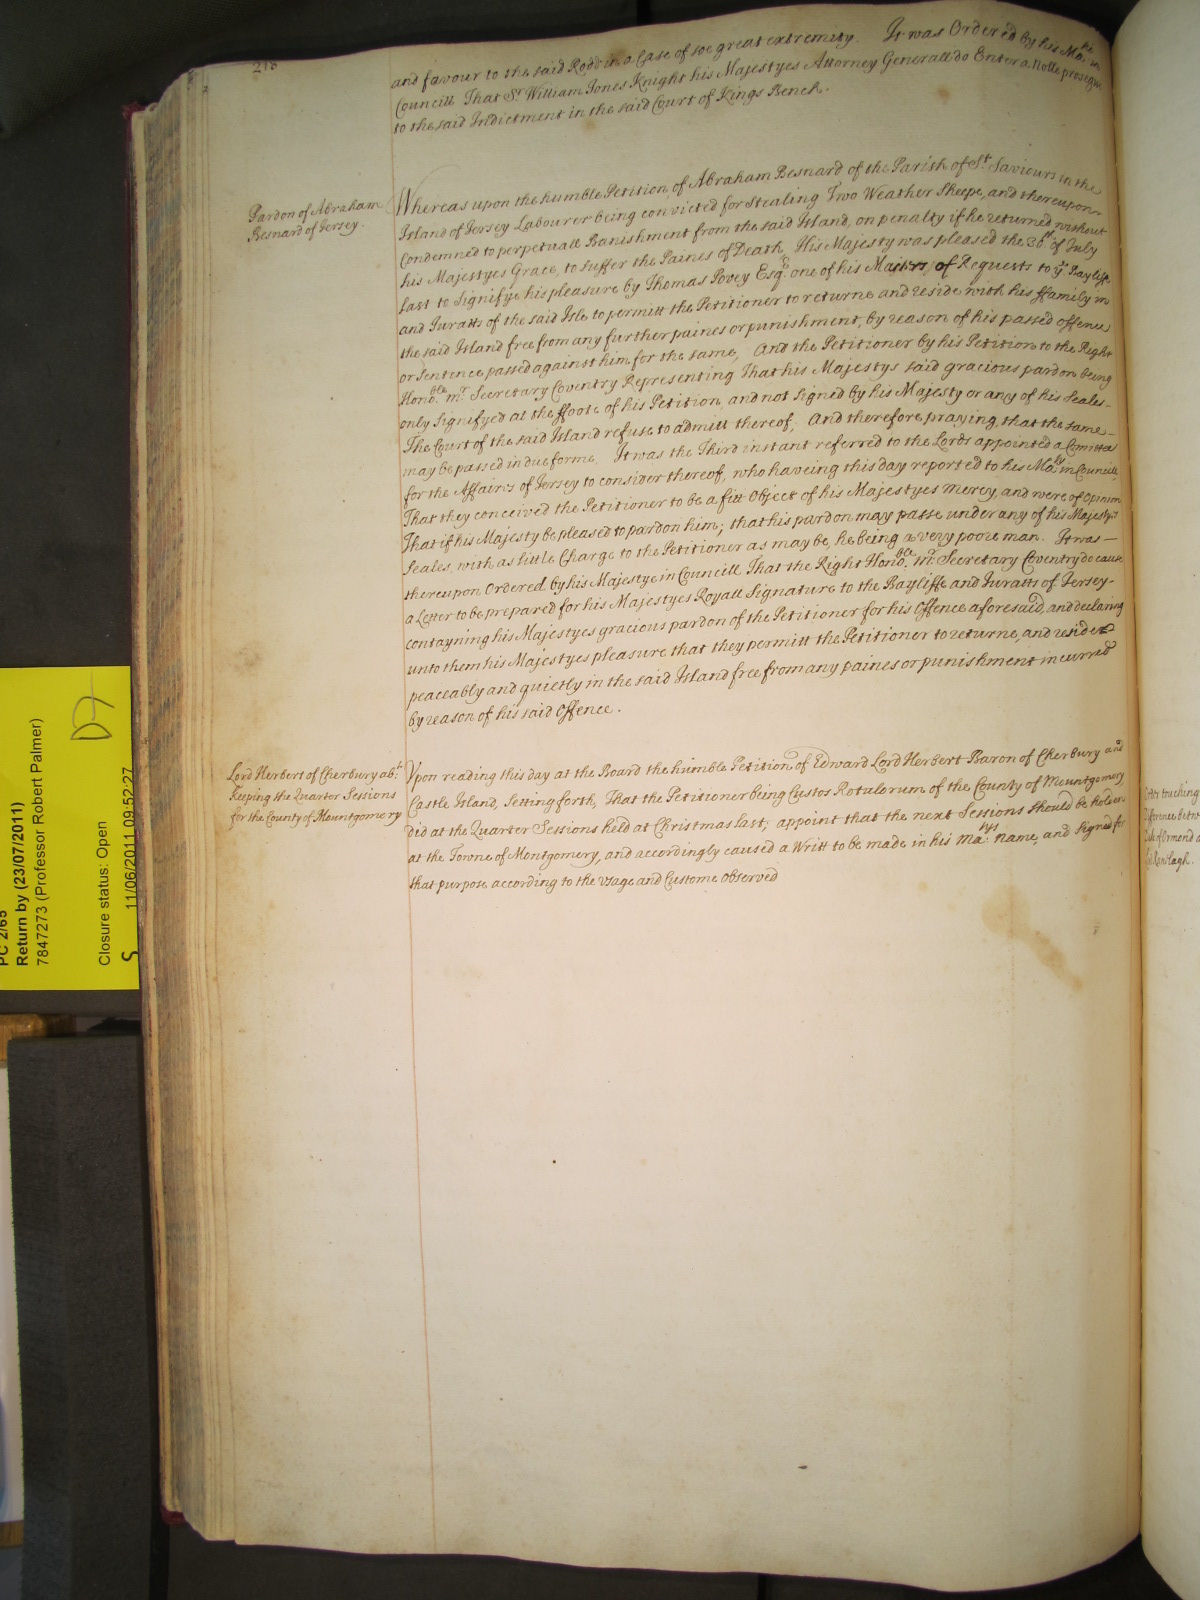 218
and favour to the said Rodd in a Case of soe great extremity. It was Ordered by his Matie in
Councill That Sr William Jones Knight his Majestyes Attorney Generall do Enter a Nolle prosequi
to the said Indictment in the said Court of Kings Bench.
Pardon of Abraham
Besnard of Jersey.
Whereas upon the humble Petition of Abraham Besnard of the Parish of St Saviours in the
Island of Jersey Labourer being convicted for stealing Two Weather Sheepe, and thereupon
Condemned to perpetuall Banishment from the said Island, on penalty if he returned without
his Majestyes Grace, to suffer the Paines of Death, His Majesty was pleased the of July
last to Signifye his pleasure by Thomas Povey Esqr. one of his Masters of Requests to ye Bayliffe
and Juratts of the said Isle to permitt the Petitioner to returne and reside with his ffamily in
the said Island free from any further paines or punishment, by reason of his passed offence
or Sentence passed against him for the same, And the Petitioner by his Petition to the Right
Honoble. mr Secretary Coventry Representing That his Majestys said gracious pardon being
only Signifyed at the ffoote of his Petition, and not Signed by his Majesty or any of his Seales-
The Court of the said Island refuse to admitt thereof, And therefore praying, that the same-
may be passed in due forme. It was the Third instant referred to the Lords appointed a Comittee
for the Affairs of Jersey to consider thereof, who haveing this day reported to his Maty in Councill,
That they conceived the Petitioner to be a fitt Object of his Majestyes mercy, and were of Opinion
That if his Majesty be pleased to pardon him; that his pardon may passe under any of his Majestys
Seales, with as little Charge to the Petitioner as may be, he being a very poore man. It was -
thereupon Ordered by his Majestye in Councill That the Right Honoble. mr. Secretary Coventry do cause
a Letter to be prepared for his Majestyes Royall Signature to the Bayliffe and Juratts of Jersey-
contayning his Majestyes gracious pardon of the Petitioner for his Offence aforesaid, and declaring
unto them his Majestyes pleasure that they permitt the Petitioner to returne, and reside
peaceably and quietly in the said Island free from any paines or punishment incurred
by reason of his said Offence.
Lord Herbert of Cherbury abt.
Keeping the Quarter Sessions
for the County of Mountgomery
Vpon reading this day at the Board the humble Petition of Edward Lord Herbert Baron of Cherbury and
Castle Island, Setting forth, That the Petitioner being Custos Rotulorum of the County of Mountgomery,
did at the Quarter Sessions held at Christmas last, appoint that the next Sessions should be holden
at the Towne of Montgomery, and accordingly caused a Writt to be made in his Matys name, and Signed for
that purpose according to the vsage and Custome observed
touching
Difference betw
Duke of Ormond a
Ranelagh.
PC 2/65
Return by (23/07/2011)
7847273 (Professor Robert Palmer)
Closure status: Open
S 11/06/2011 09:52:27
D7